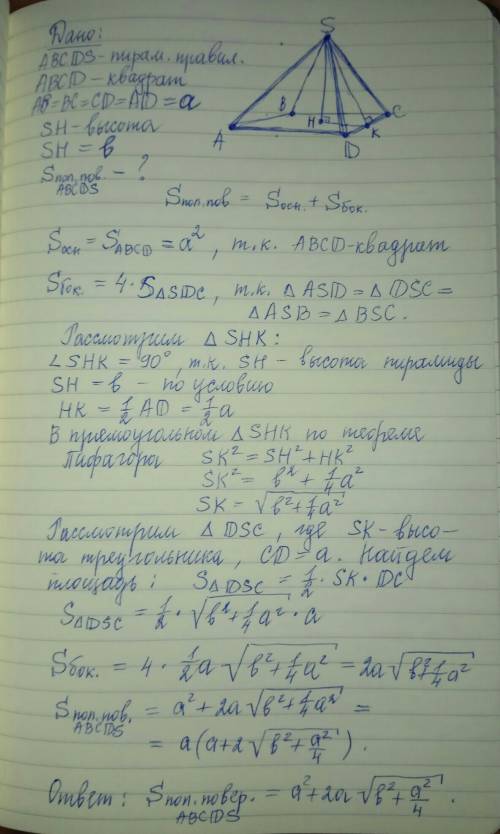 Дано:
ABCDS-пирам. правил.
ABCD-квадрат
AB=BC=CD=AD=a
SH-высота
SH=в
Sпол.пов. ABCDS - ?
S
A
B
H
K
C
D
Sпол.пов = Sосн. + Sбок.
Sосн = SABCD = a², т.к. ABCD-квадрат
Sбок. = 4·S△SDC, т.к. △ASD=△DSC=
△ASB=△BSC.
Рассмотрим △SHK:
∠SHK = 90°, т.к. SH-высота пирамиды
SH = в - по условию
HK = 1/2 AD = 1/2 a
В прямоугольном △SHK по теореме
Пифагора SK² = SH² + HK²
SK² = в² + 1/4 a²
SK = √(в² + 1/4 a²)
Рассмотрим △DSC, где SK-высо-
та треугольника, CD=a. Найдем
площадь: S△DSC = 1/2 · SK · DC
S△DSC = 1/2 · √(в² + 1/4 a²) · a
Sбок. = 4 · 1/2 a √(в² + 1/4 a²) = 2a √(в² + 1/4 a²)
Sпол.пов. ABCDS = a² + 2a √(в² + 1/4 a²) =
= a(a + 2 √(в² + a²/4)).
Ответ: Sпол.повер. ABCDS = a² + 2a √(в² + a²/4).